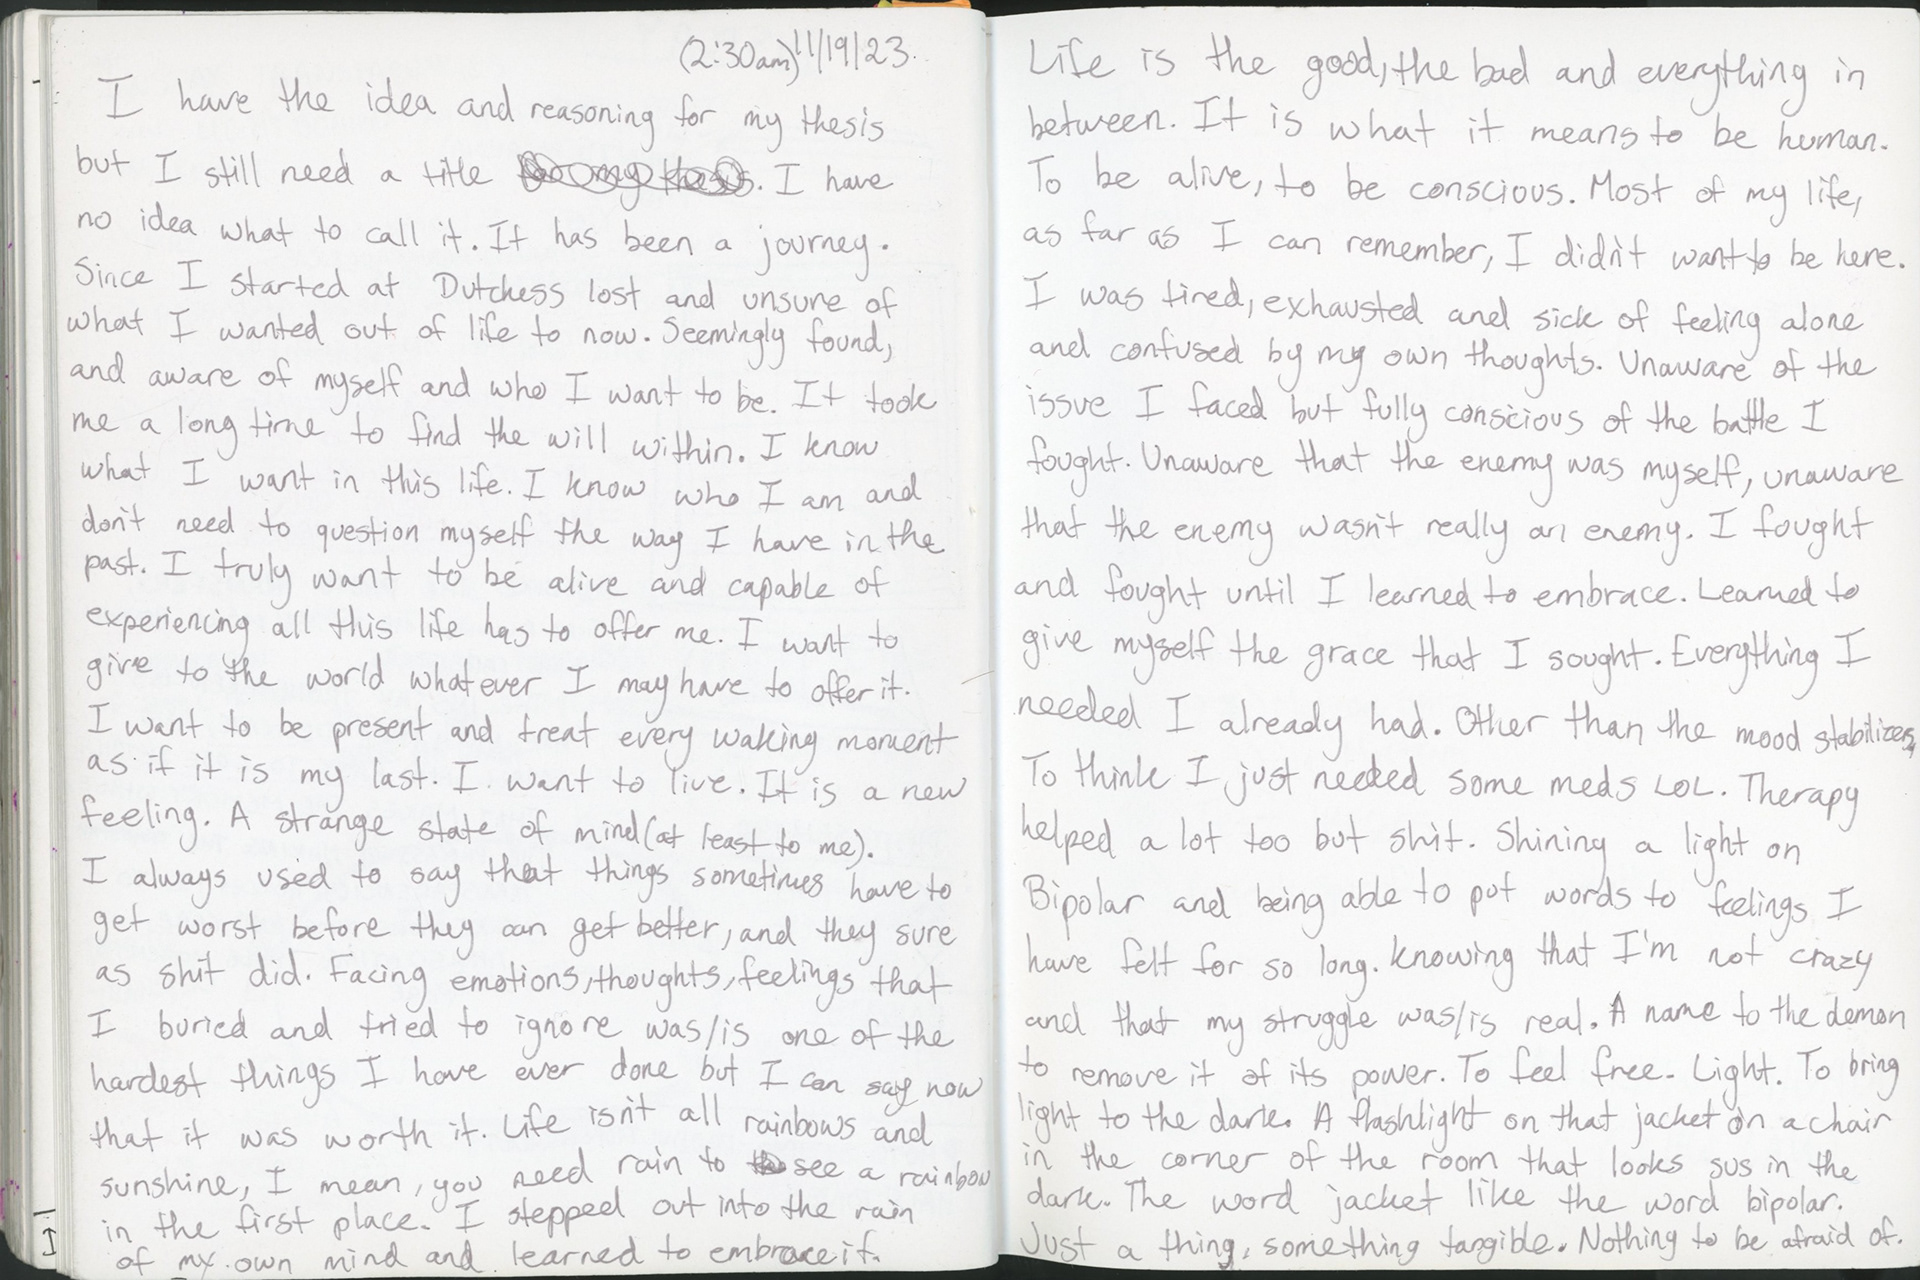 (2:30am) 11/19/23.
I have the idea and reasoning for my thesis
but I still need a title for my thesis. I have
no idea what to call it. It has been a journey.
Since I started at Dutchess lost and unsure of
what I wanted out of life to now. Seemingly found,
and aware of myself and who I want to be. It took
me a long time to find the will within. I know
what I want in this life. I know who I am and
don't need to question myself the way I have in the
past. I truly want to be alive and capable of
experiencing all this life has to offer me. I want to
give to the world whatever I may have to offer it.
I want to be present and treat every waking moment
as if it is my last. I want to live. It is a new
feeling. A strange state of mind (at least to me).
I always used to say that things sometimes have to
get worst before they can get better, and they sure
as shit did. Facing emotions, thoughts, feelings that
I buried and tried to ignore was/is one of the
hardest things I have ever done but I can say now
that it was worth it. Life isn't all rainbows and
sunshine, I mean, you need rain to see a rainbow
in the first place. I stepped out into the rain
of my own mind and learned to embrace it.
Life is the good, the bad and everything in
between. It is what it means to be human.
To be alive, to be conscious. Most of my life,
as far as I can remember, I didn't want to be here.
I was tired, exhausted and sick of feeling alone
and confused by my own thoughts. Unaware of the
issue I faced but fully conscious of the battle I
fought. Unaware that the enemy was myself, unaware
that the enemy wasn't really an enemy. I fought
and fought until I learned to embrace. Learned to
give myself the grace that I sought. Everything I
needed I already had. Other than the mood stabilizers,
To think I just needed some meds LOL. Therapy
helped a lot too but shit. Shining a light on
Bipolar and being able to put words to feelings I
have felt for so long. Knowing that I'm not crazy
and that my struggle was/is real. A name to the demon
to remove it of its power. To feel free. Light. To bring
light to the dark. A flashlight on that jacket on a chair
in the corner of the room that looks sus in the
dark. The word jacket like the word bipolar.
Just a thing, something tangible. Nothing to be afraid of.